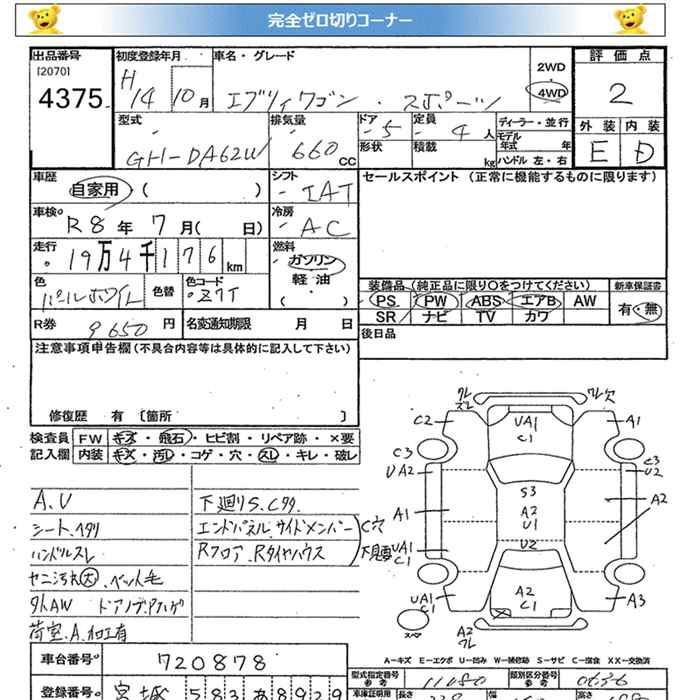 完全ゼロ切りコーナー
出品番号 初度登録年月 車名・グレード 2WD 評価点
[2070]
4375 H14 10月 エブリィワゴン・スポーツ 4WD 2
型式 排気量 ドア 定員 ディーラー・並行 外装 内装
GH-DA62W 660CC 5 4人 モデル年式 年 E D
形状 積載 kg ハンドル 左・右
車歴 シフト セールスポイント (正常に機能するものに限ります)
自家用 ( ) IAT
車検 冷房
R8年 7月 ( 日) AC
走行 燃料
19万4千176km ガソリン
色 色替 色コード 軽・油
パールホワイト Z7T ( )
装備品 (純正品に限り○をつけてください) 新車保証書
PS PW ABS エアB AW 有・無
SR ナビ TV カワ
R券 9650円 名変通知期限 月 日 後日品
注意事項申告欄 (不具合内容等は具体的に記入して下さい)
修復歴 有 [箇所 ]
検査員 FW キズ・飛石・ヒビ割・リペア跡・×要
記入欄 内装 キズ・汚レ・コゲ・穴・スレ・キレ・破レ
A.U 下廻りS.Cタタ
シートヘタリ エンドパネル.サイドメンバー
ハンドルスレ Rフロア.Rタイヤハウス
C穴
下見要
ヤニ汚れ大.ペット毛
社外AW
荷室.A.加工有
クレ ズレ クレ 欠
C2 UA1 C1 A1
C3 C3
UA2 U2
S3
A1 A2 U1 A2
UA1 C1 U2
UA1 C1 A2 C1 A3
スペア A2 クレ
A=キズ E=エクボ U=凹み W=補修跡 S=サビ C=腐食 X・XX=交換済
車台番号 720878 型式指定番号 参考 11080 類別区分番号 参考 0636
登録番号 宮城 583 あ 8929 車庫証明用 長さ 幅 高さ